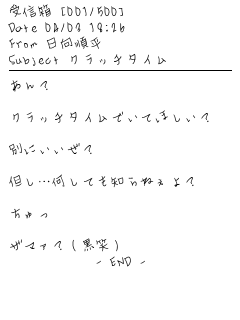 受信箱 [001/500]
Date 04/03 18:26
From 日向順平
Subject クラッチタイム
あん?
クラッチタイムでいてほしい?
別にいいぜ?
但し…何しても知らねぇよ?
ちゅっ
ザマァ?(黒笑)
- END -